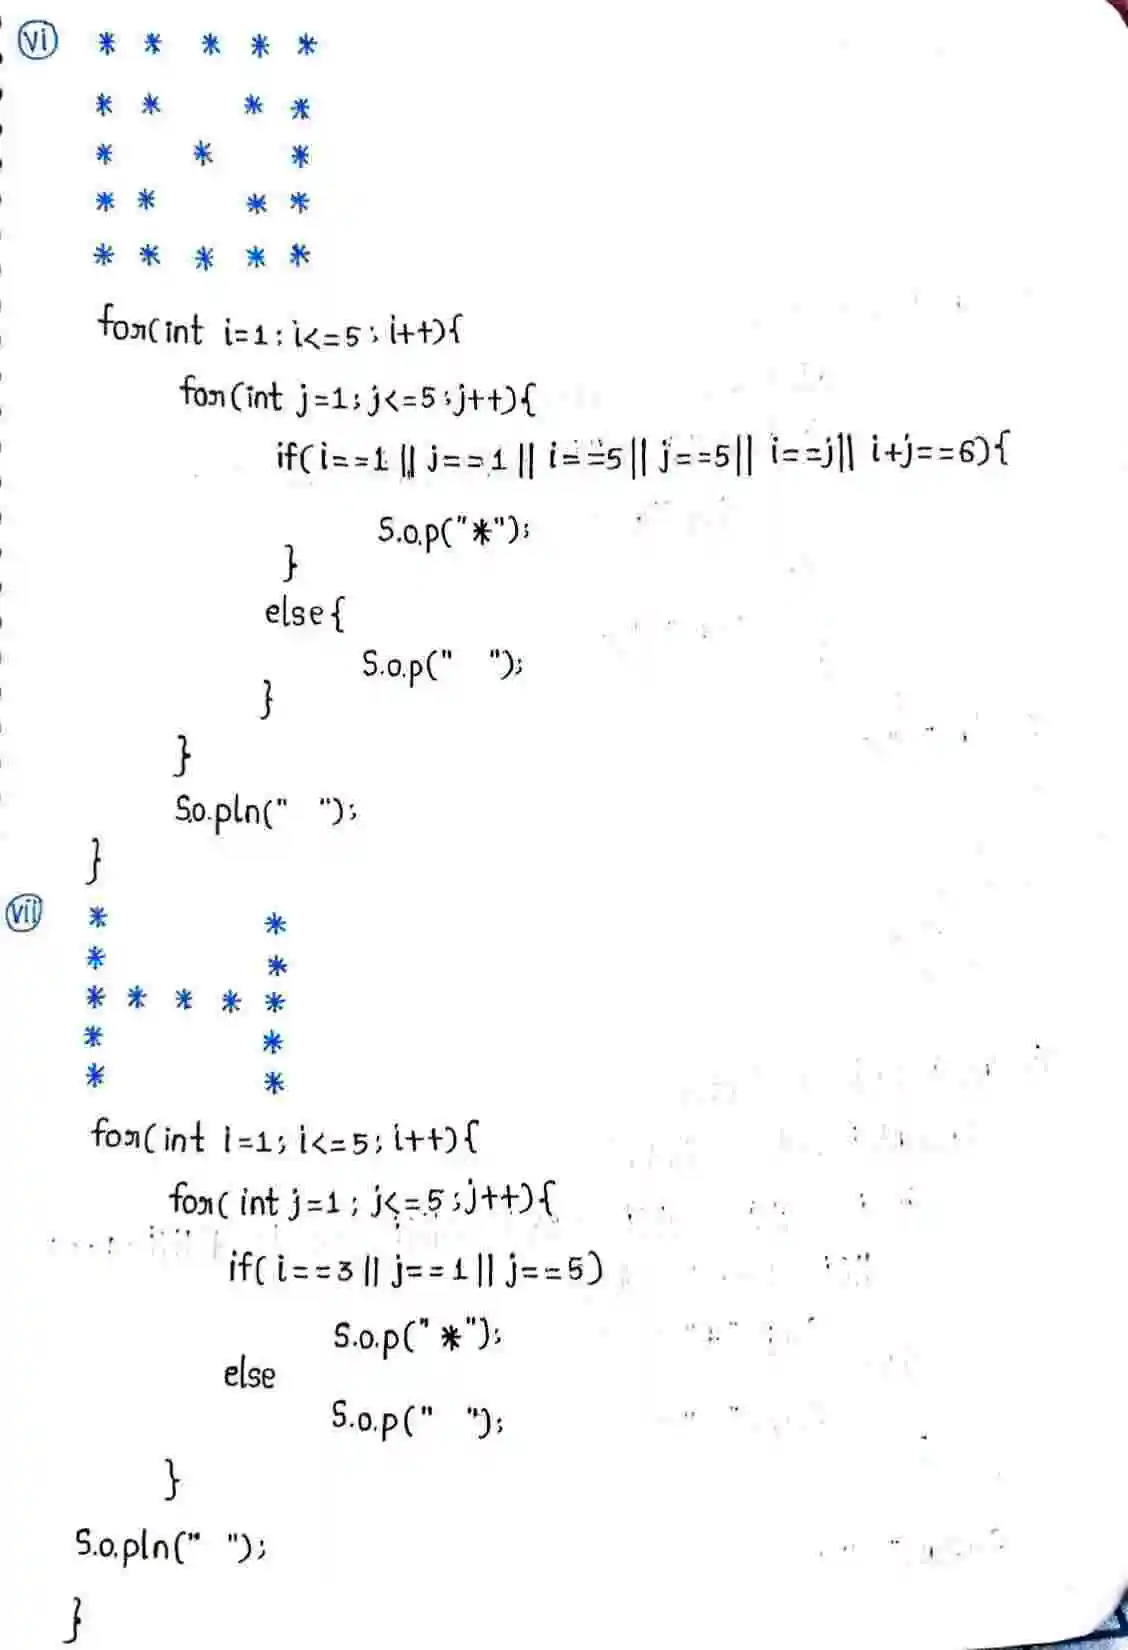 vi * * * * *
* * * *
* * *
* * * *
* * * * *
for(int i=1; i<=5; i++){
for(int j=1; j<=5; j++){
if(i==1 || j==1 || i==5 || j==5 || i==j || i+j==6){
S.o.p("*");
}
else{
S.o.p(" ");
}
}
S.o.pln(" ");
}
vii * *
* *
* * * * *
* *
* *
for(int i=1; i<=5; i++){
for(int j=1; j<=5; j++){
if(i==3 || j==1 || j==5)
S.o.p("*");
else
S.o.p(" ");
}
S.o.pln(" ");
}